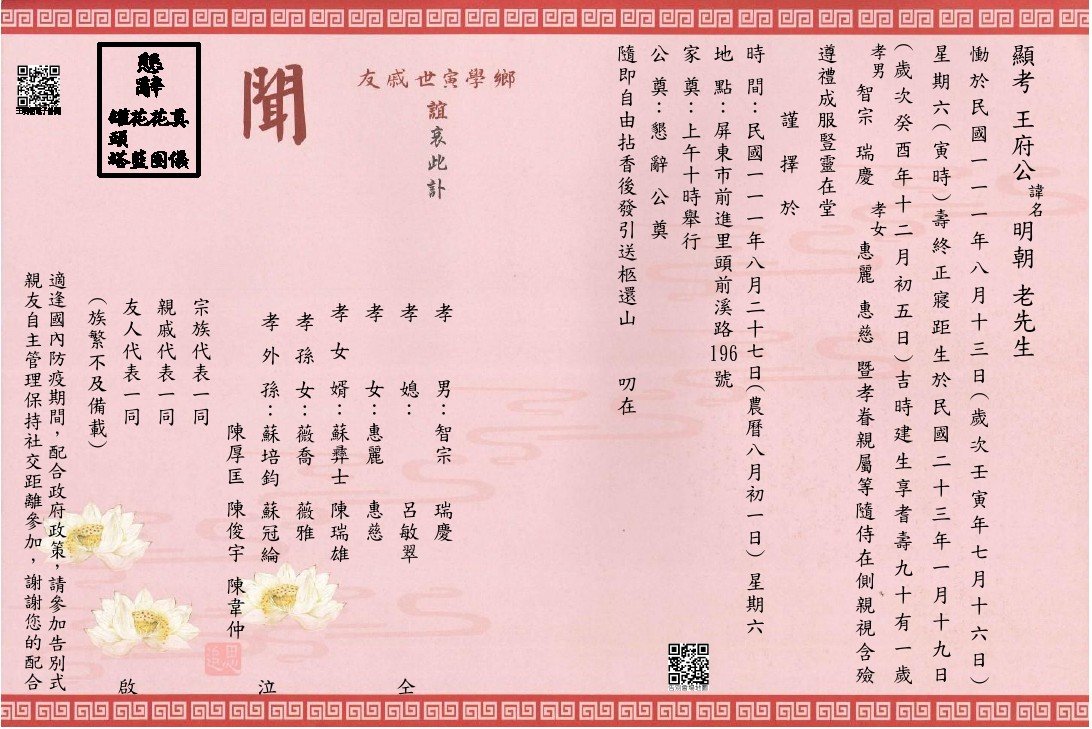 顯考 王府公諱名明朝 老先生
慟於民國一一一年八月十三日(歲次壬寅年七月十六日)
星期六(寅時)壽終正寢距生於民國二十三年一月十九日
(歲次癸酉年十二月初五日)吉時建生享耆壽九十有一歲
孝男 智宗 瑞慶 孝女 惠麗 惠慈 暨孝眷親屬等隨侍在側親視含殮
遵禮成服豎靈在堂
謹擇於
時間:民國一一一年八月二十七日(農曆八月初一日)星期六
地點:屏東市前進里頭前溪路196號
家奠:上午十時舉行
公奠:懇辭公奠
隨即自由拈香後發引送柩還山 叨在
鄉學寅世戚友
誼哀此訃
聞
孝男:智宗 瑞慶
孝媳: 呂敏翠
孝女:惠麗 惠慈
孝女婿:蘇彝士 陳瑞雄
孝孫女:薇喬 薇雅
孝外孫:蘇培鈞 蘇冠綸
陳厚匡 陳俊宇 陳韋仲
仝
泣
啟
宗族代表一同
親戚代表一同
友人代表一同
(族繁不及備載)
適逢國內防疫期間,配合政府政策,請參加告別式
親友自主管理保持社交距離參加,謝謝您的配合
懇辭
奠儀
花圈
花籃
罐頭塔
告別會場地圖